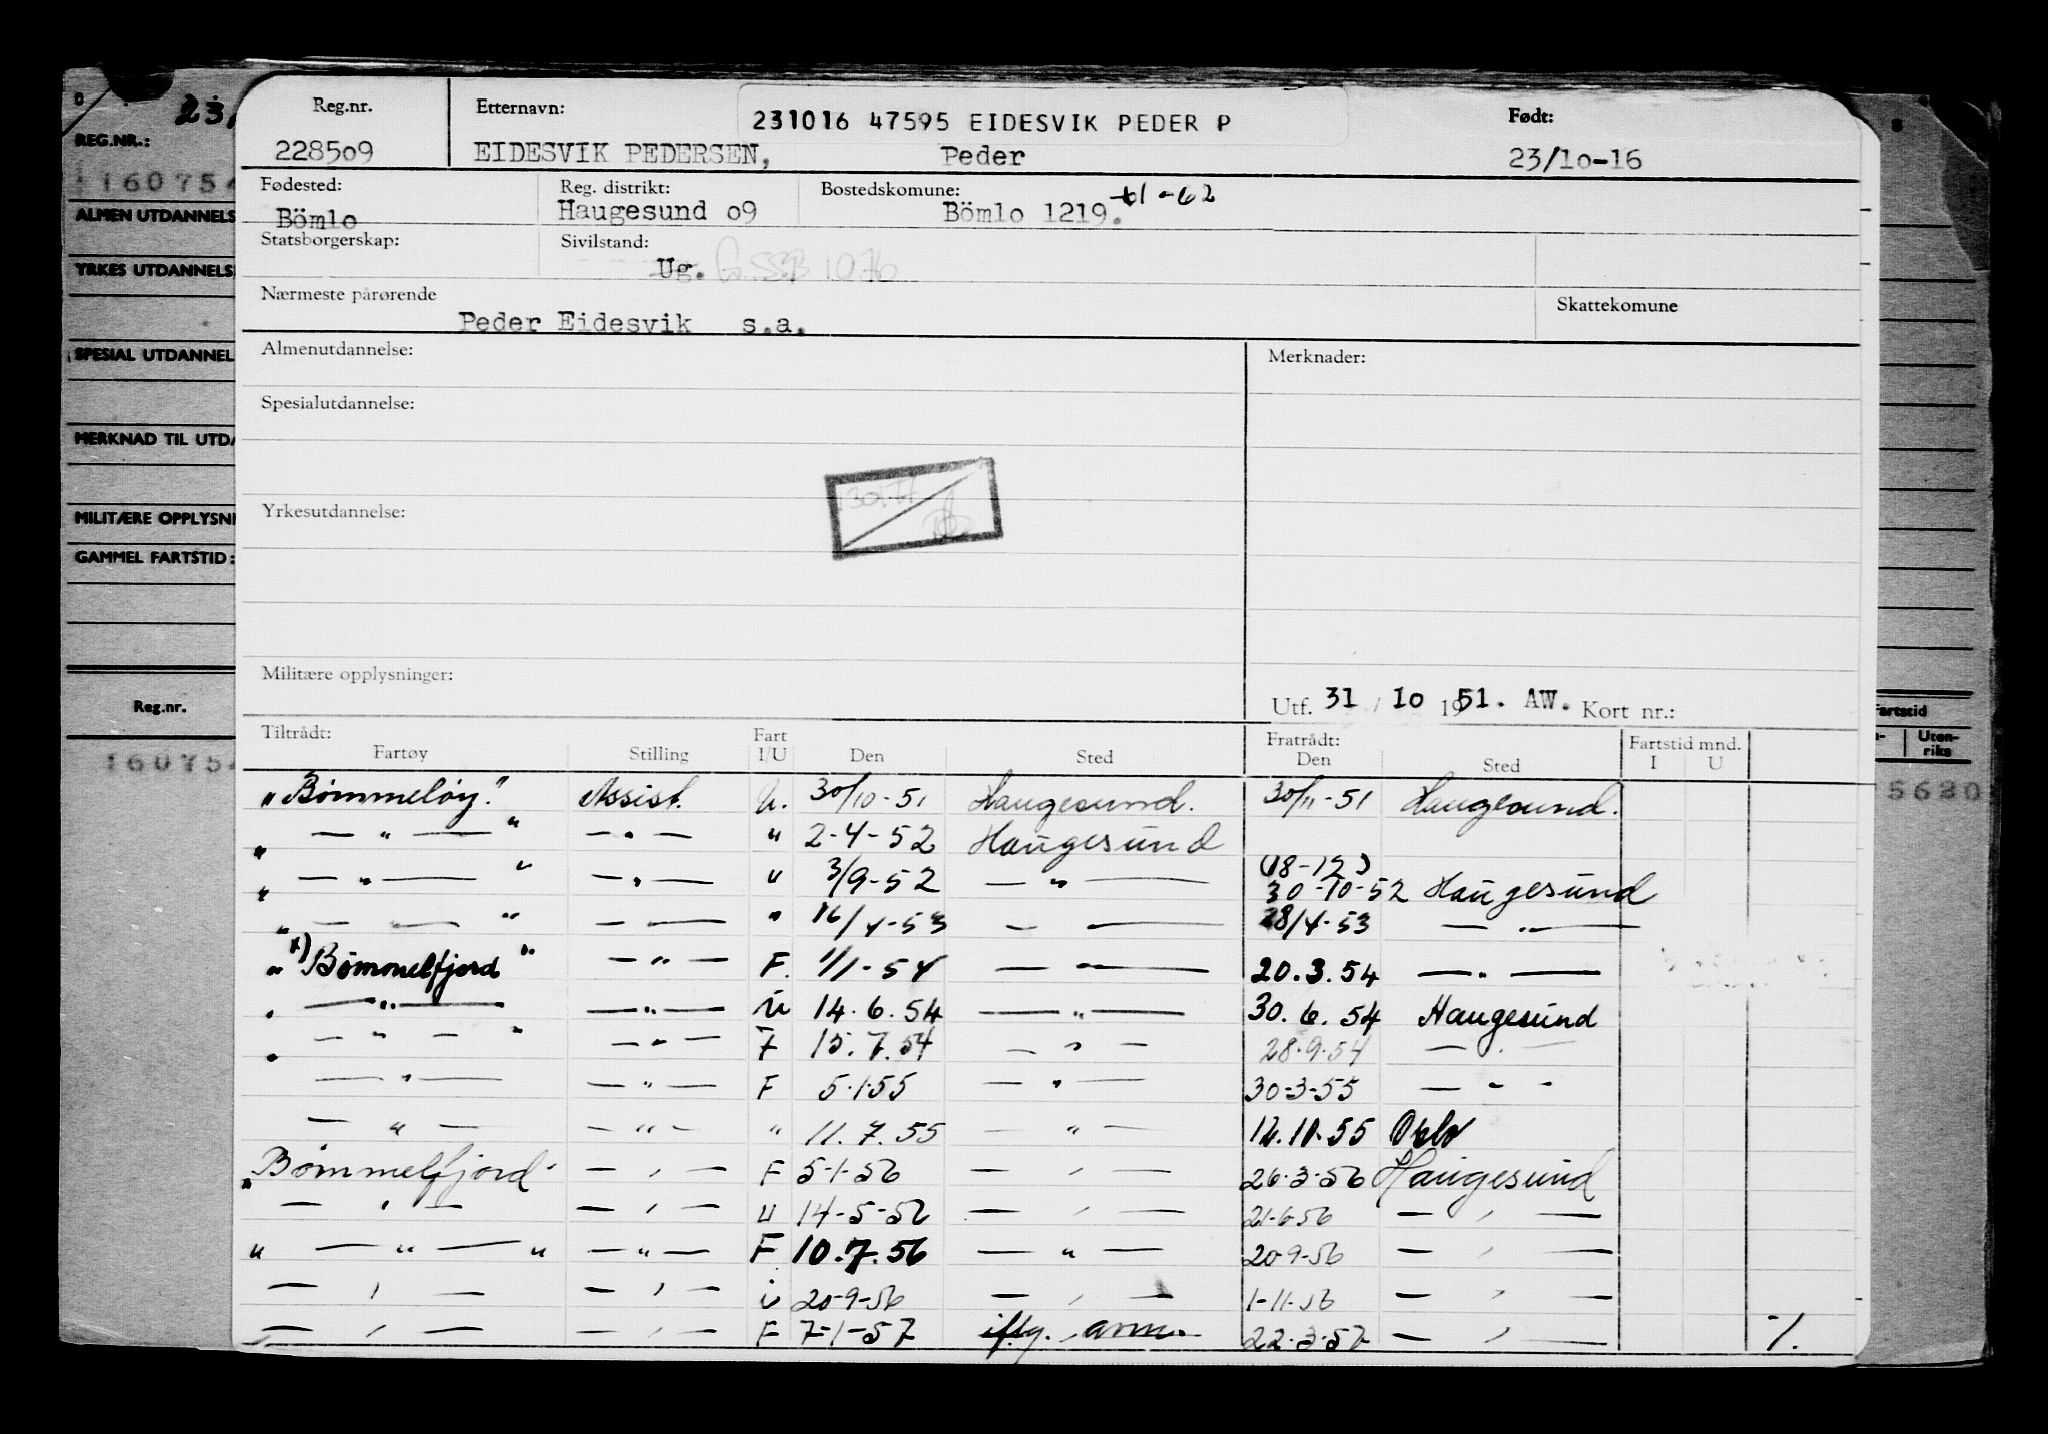 23,
REG.NR.:
160754
ALMEN UTDANNELS
YRKES UTDANNELS
SPESIAL UTDANNEL
MERKNAD TIL UTDA
MILITÆRE OPPLYSNI
GAMMEL FARTSTID:
Reg.nr.
160754
Reg.nr. Etternavn: 231016 47595 EIDESVIK PEDER P Født:
228509 EIDESVIK PEDERSEN, Peder 23/10-16
Fødested: Reg. distrikt: Bostedskomune: -62
Bömlo Haugesund 09 Bömlo 1219.
Statsborgerskap: Sivilstand:
Ug. G. SSB 1076
Nærmeste pårørende Skattekomune
Peder Eidesvik s.a.
Almenutdannelse: Merknader:
Spesialutdannelse:
Yrkesutdannelse:
Militære opplysninger:
Utf. 31 / 10 1951. AW. Kort nr.:
Tiltrådt: Fart Fratrådt: Fartstid mnd.
Fartøy Stilling I/U Den Sted Den Sted I U
"Bømmeløy." Assist. U. 30/10-51 Haugesund. 30/11-51 Haugesund.
" — " — " — " — " 2-4-52 Haugesund
(18-12)
" — " — " — " — " 3/9-52 — " — 30-10-52 Haugesund
" — — " — — " 16/4-53 — " — 28/4-53 — " —
" x) Bømmelfjord " — " — F. 1/1-54 — " — 20.3.54 — " —
" — " — — " — U 14.6.54 — " — 30.6.54 Haugesund
" — " — " — " — F 15.7.54 — " — 28.9.54 — " —
— " — — " — F 5-1-55 — " — 30-3-55 — " —
— " — — " — " 11.7.55 — " — 12.10.55 Oslo
"Bømmelfjord" — " — F 5-1-56 — " — 26-3-56 Haugesund
— " — — " — U 14-5-56 — " — 21-6-56 — " —
" — " — " — " — F 10.7.56 — " — 20-9-56 — " —
— " — — " — U 20-9-56 — " — 1-11-56 — " —
— " — — " — F 7-1-57 iflg. 22-3-57 — " —
Fartstid
Uten-
riks
5630